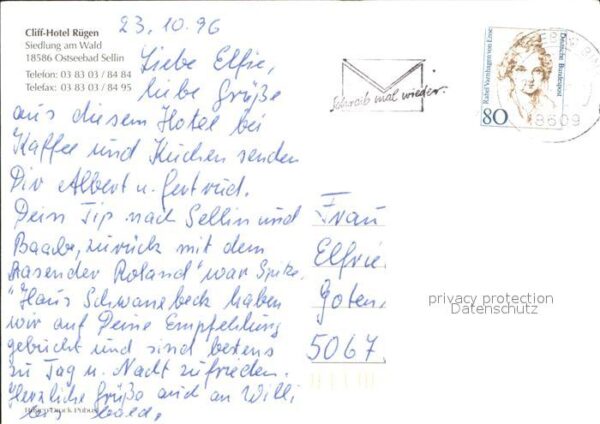 Cliff-Hotel Rügen
Siedlung am Wald
18586 Ostseebad Sellin
Telefon: 03 83 03 / 84 84
Telefax: 03 83 03 / 84 95
23.10.96
Liebe Elfie,
liebe Grüße
aus diesem Hotel bei
Kaffee und Kuchen senden
Dir Albert u. Gertrud.
Dein Tip nach Sellin und
Baabe, zurück mit dem
"Rasender Roland" war Spitze.
"Haus Schwanebeck haben
wir auf Deine Empfehlung
gebucht und sind bestens
zu Tag u. Nacht zufrieden.
Herzliche Grüße auch an Willi
bis bald,
Schreib mal wieder.
Rahel Varnhagen von Ense
Deutsche Bundespost
80
18609
Frau
Elfrie
Goten
5067
privacy protection
Datenschutz